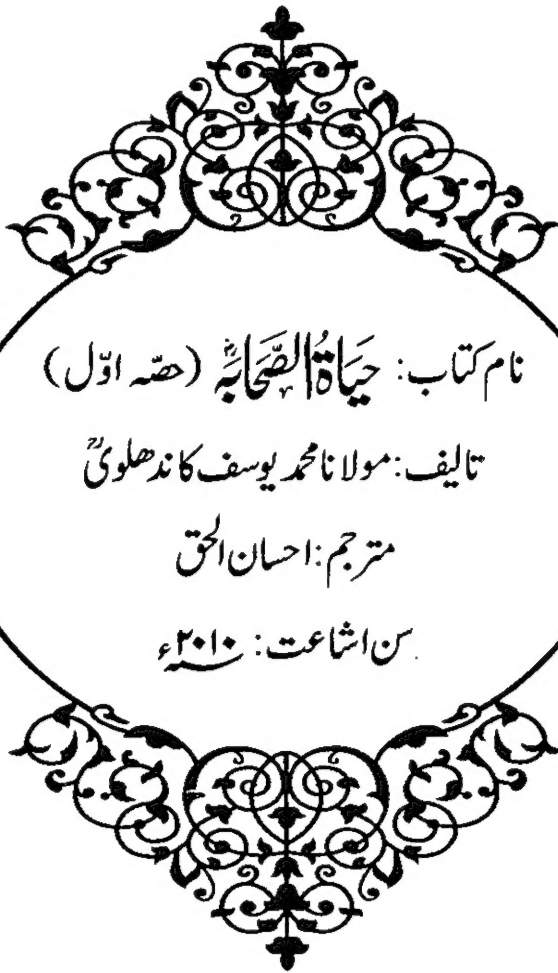 نام کتاب: حَیَاۃُ الصَّحَابَہؓ (حصّہ اوّل)
تالیف: مولانا محمد یوسف کاندھلویؒ
مترجم: احسان الحق
سن اشاعت: ۲۰۱۰ء